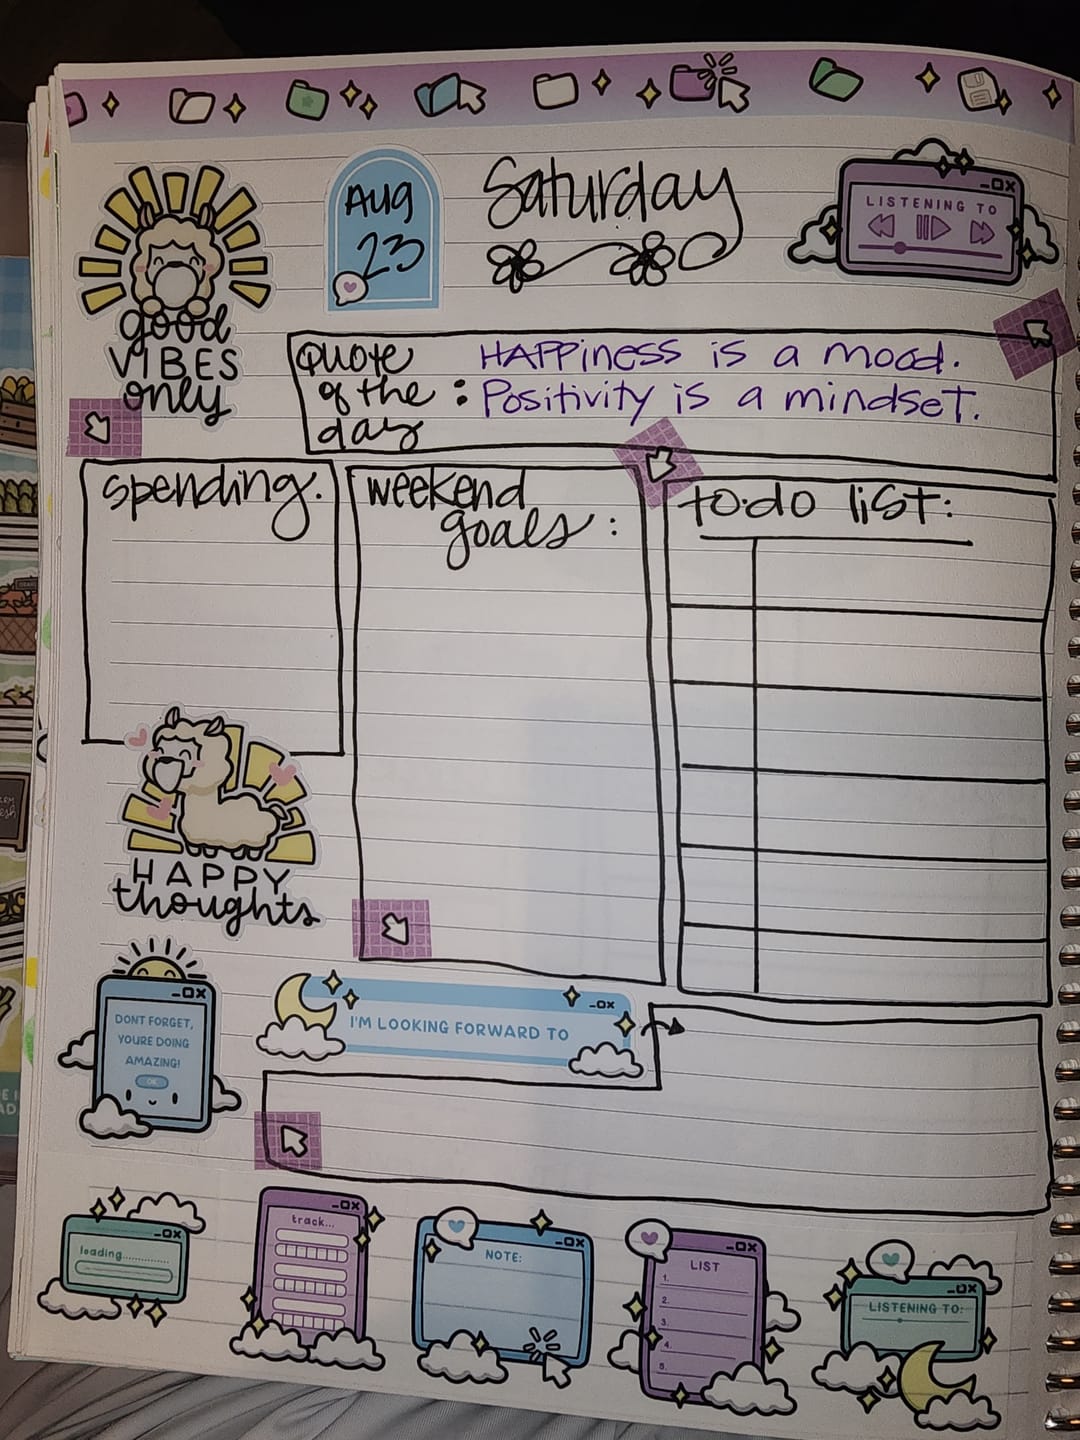 Aug
23
Saturday
LISTENING TO
good
VIBES
only
Quote
of the
day
:
HAPPiness is a mood.
Positivity is a mindset.
spending:
weekend
goals :
to·do list:
HAPPY
thoughts
DONT FORGET,
YOU'RE DOING
AMAZING!
OK
I'M LOOKING FORWARD TO
loading..............
track...
NOTE:
LIST
1.
2.
3.
4.
5.
LISTENING TO: